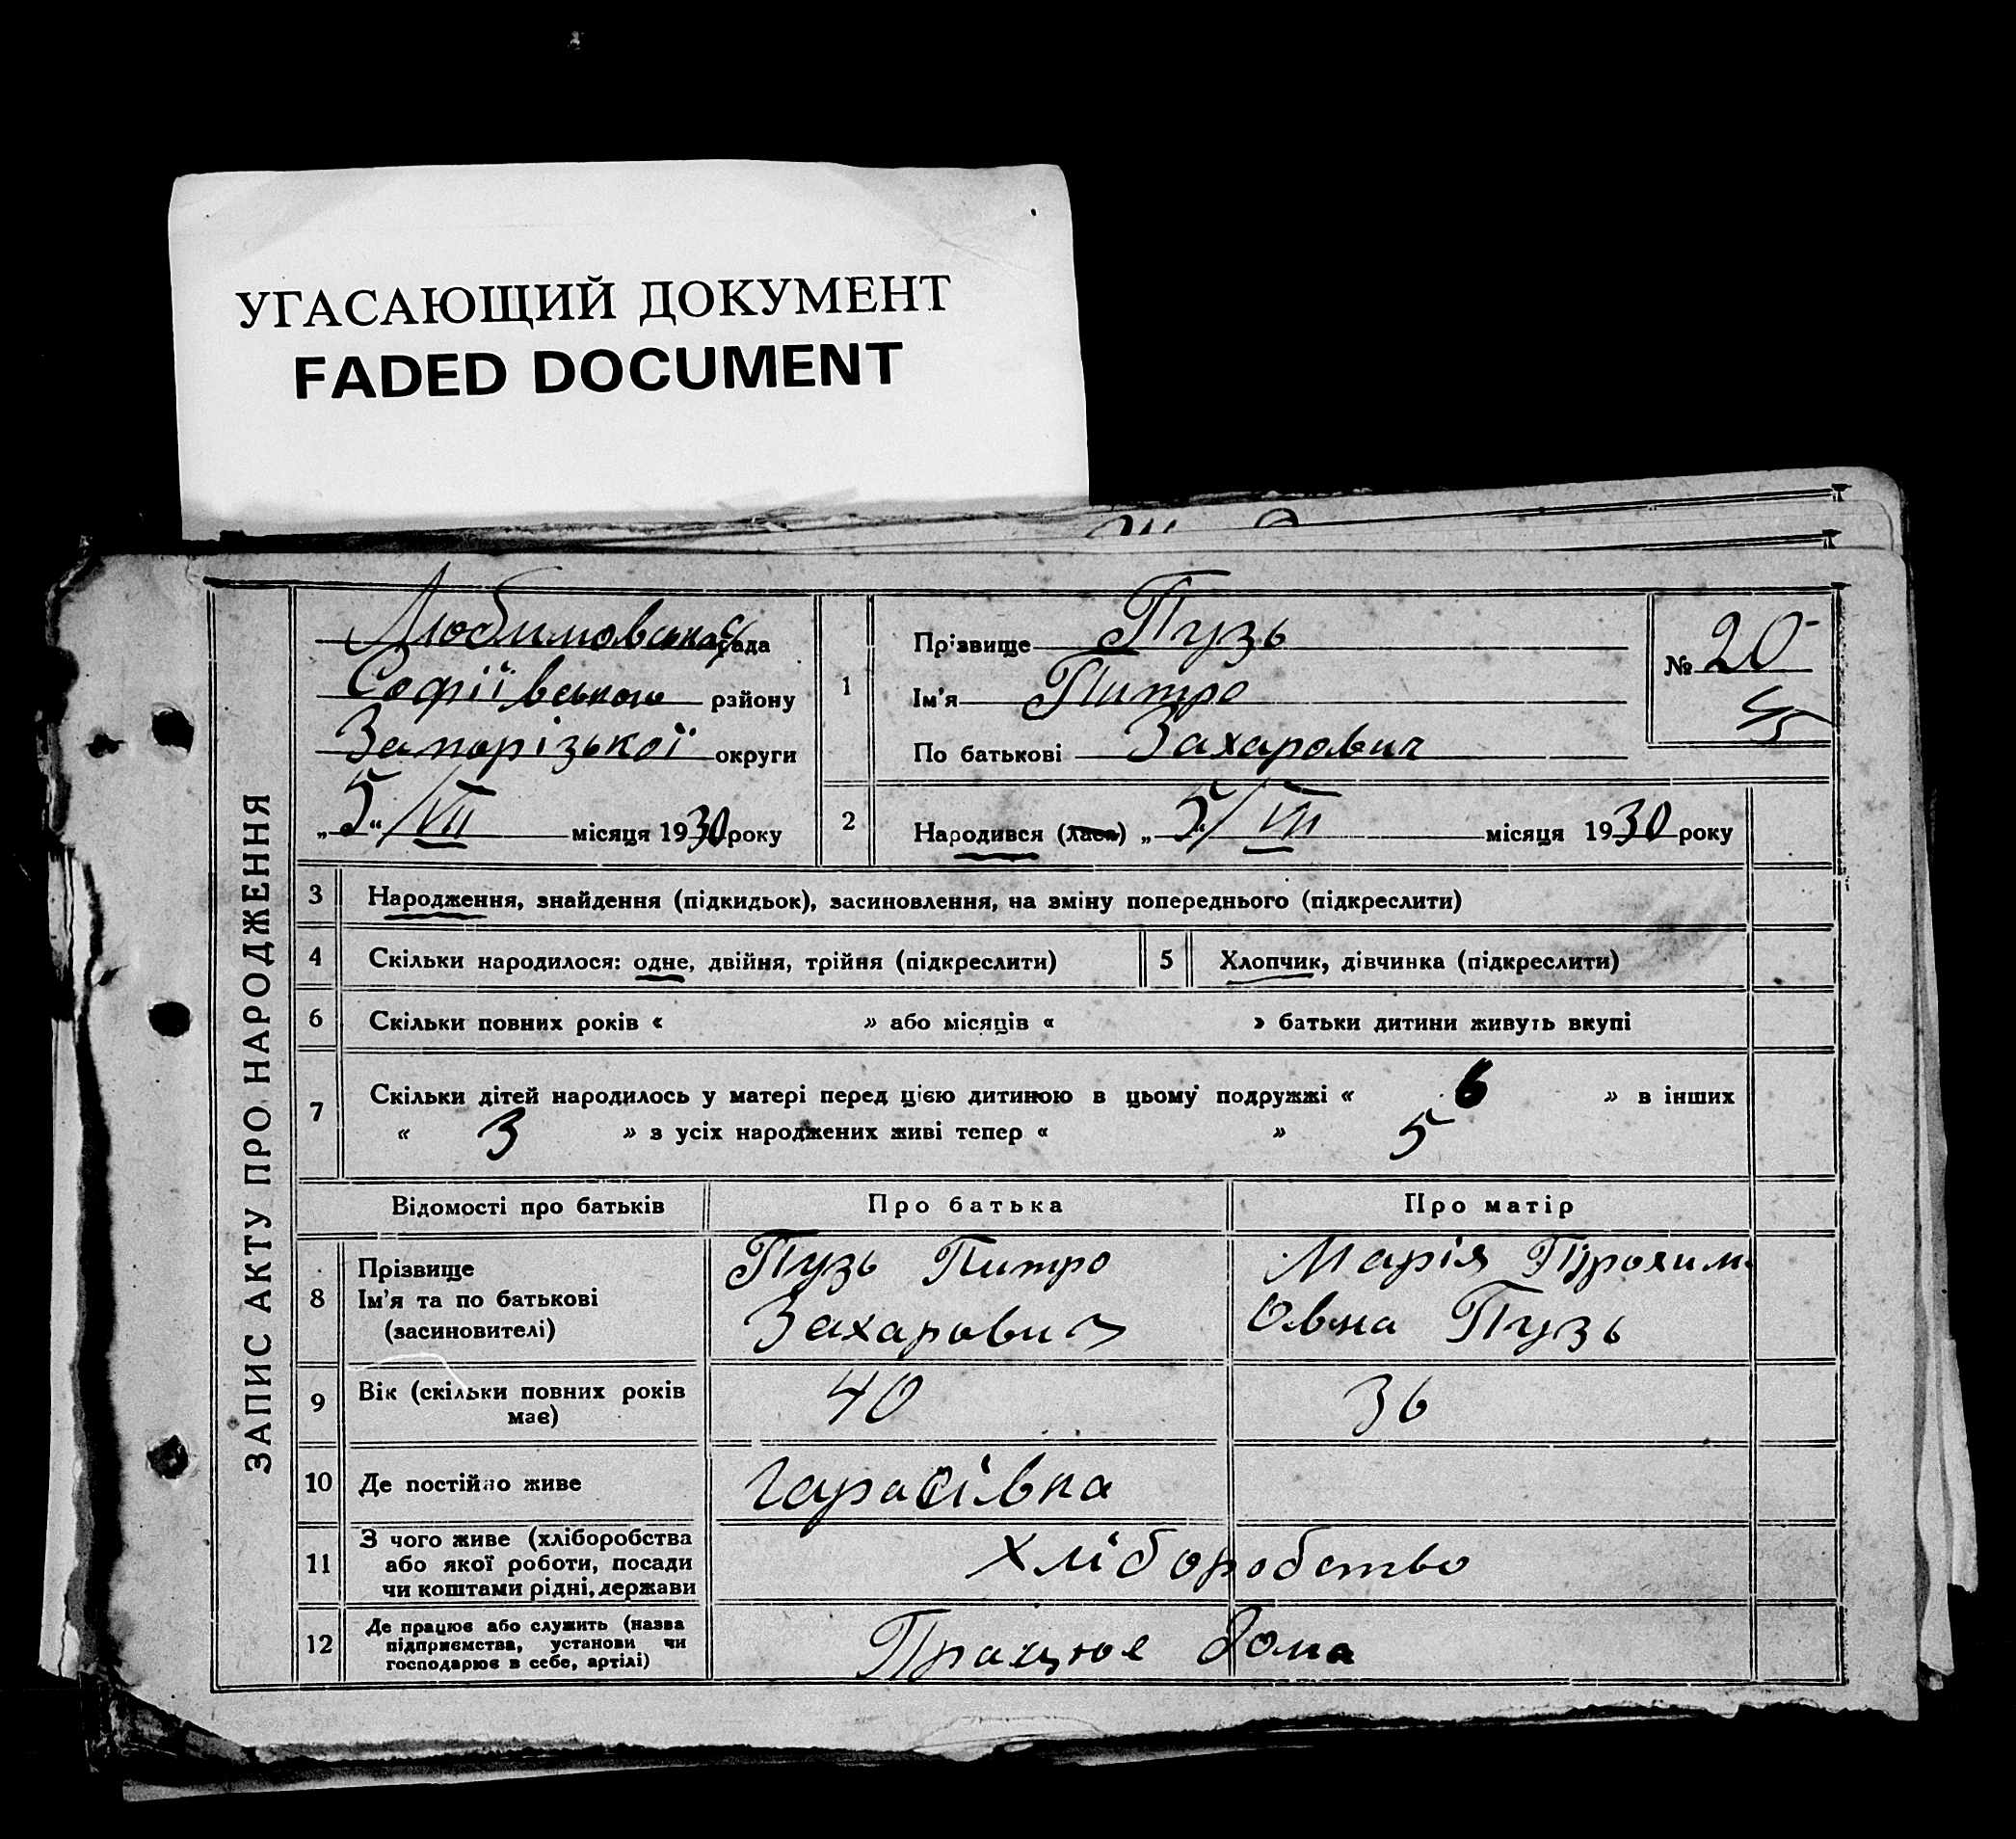 УГАСАЮЩИЙ ДОКУМЕНТ
FADED DOCUMENT
ЗАПИС АКТУ ПРО НАРОДЖЕННЯ
Любимовська рада
Софіївського району
Запорізької округи
„5“/VII місяця 1930 року
1
Прізвище Пузь
Ім'я Питро
По батькові Захарович
№ 20
2 Народився (лася) „5“/VII місяця 1930 року
3 Народження, знайдення (підкидьок), засиновлення, на зміну попереднього (підкреслити)
4 Скільки народилося: одне, двійня, трійня (підкреслити) 5 Хлопчик, дівчинка (підкреслити)
6 Скільки повних років « » або місяців « » батьки дитини живуть вкупі
7 Скільки дітей народилось у матері перед цією дитиною в цьому подружжі « 6 » в інших
« 3 » з усіх народжених живі тепер « » 5
Відомості про батьків Про батька Про матір
8 Прізвище
Ім'я та по батькові
(засиновителі)
Пузь Питро
Захарович
Марія
овна Пузь
9 Вік (скільки повних років
має)
40 36
10 Де постійно живе Гарасівка
11 З чого живе (хліборобства
або якої роботи, посади
чи коштами рідні, держави
Хліборобство
12 Де працює або служить (назва
підприємства, установи чи
господарює в себе, артілі)
Працює дома